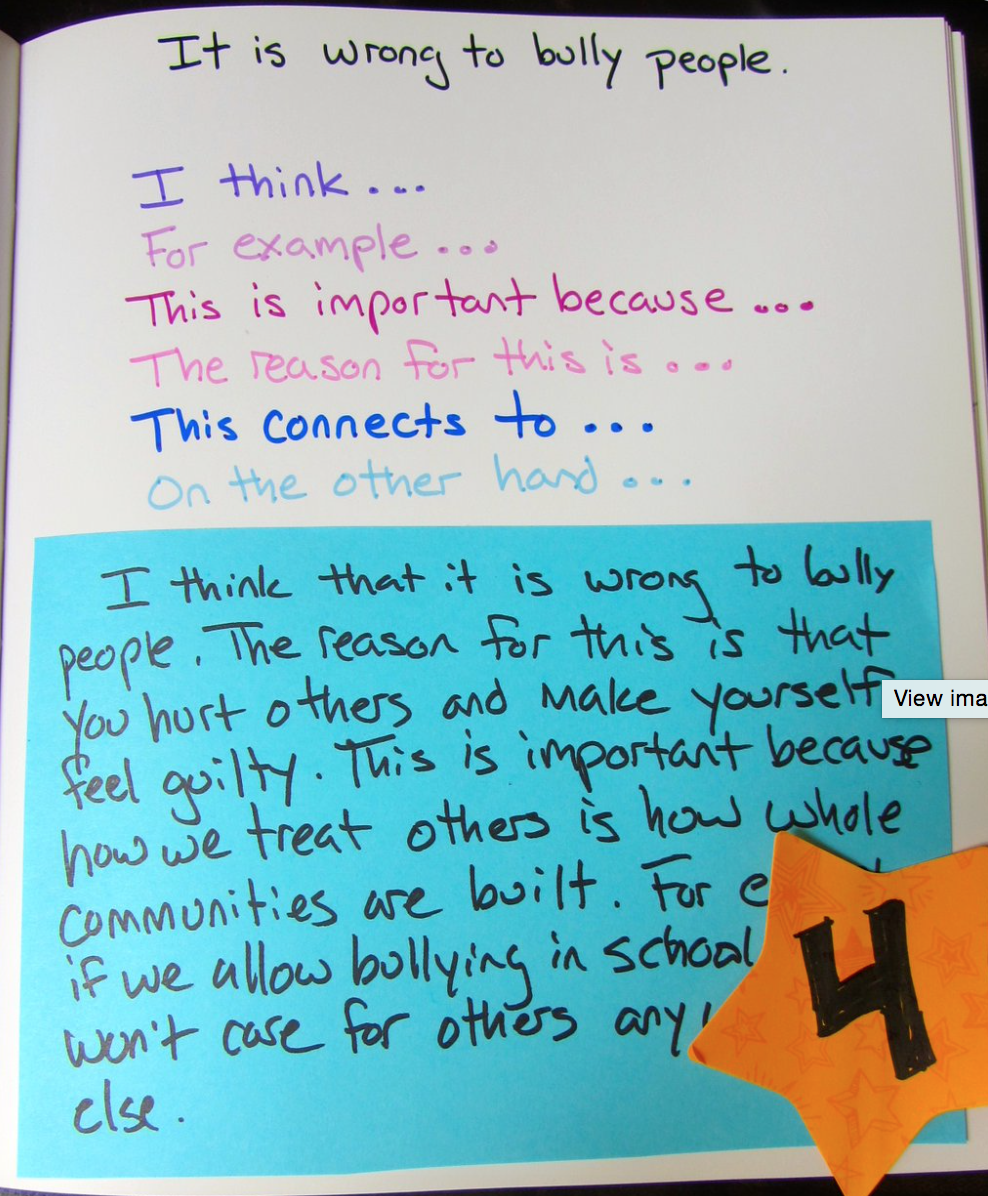 It is wrong to bully people.
I think...
For example...
This is important because...
The reason for this is...
This connects to...
On the other hand...
I think that it is wrong to bully
people. The reason for this is that
you hurt others and make yourself
View ima
feel guilty. This is important because
how we treat others is how whole
communities are built. For
if we allow bullying in school
won't case for others any
else.
4